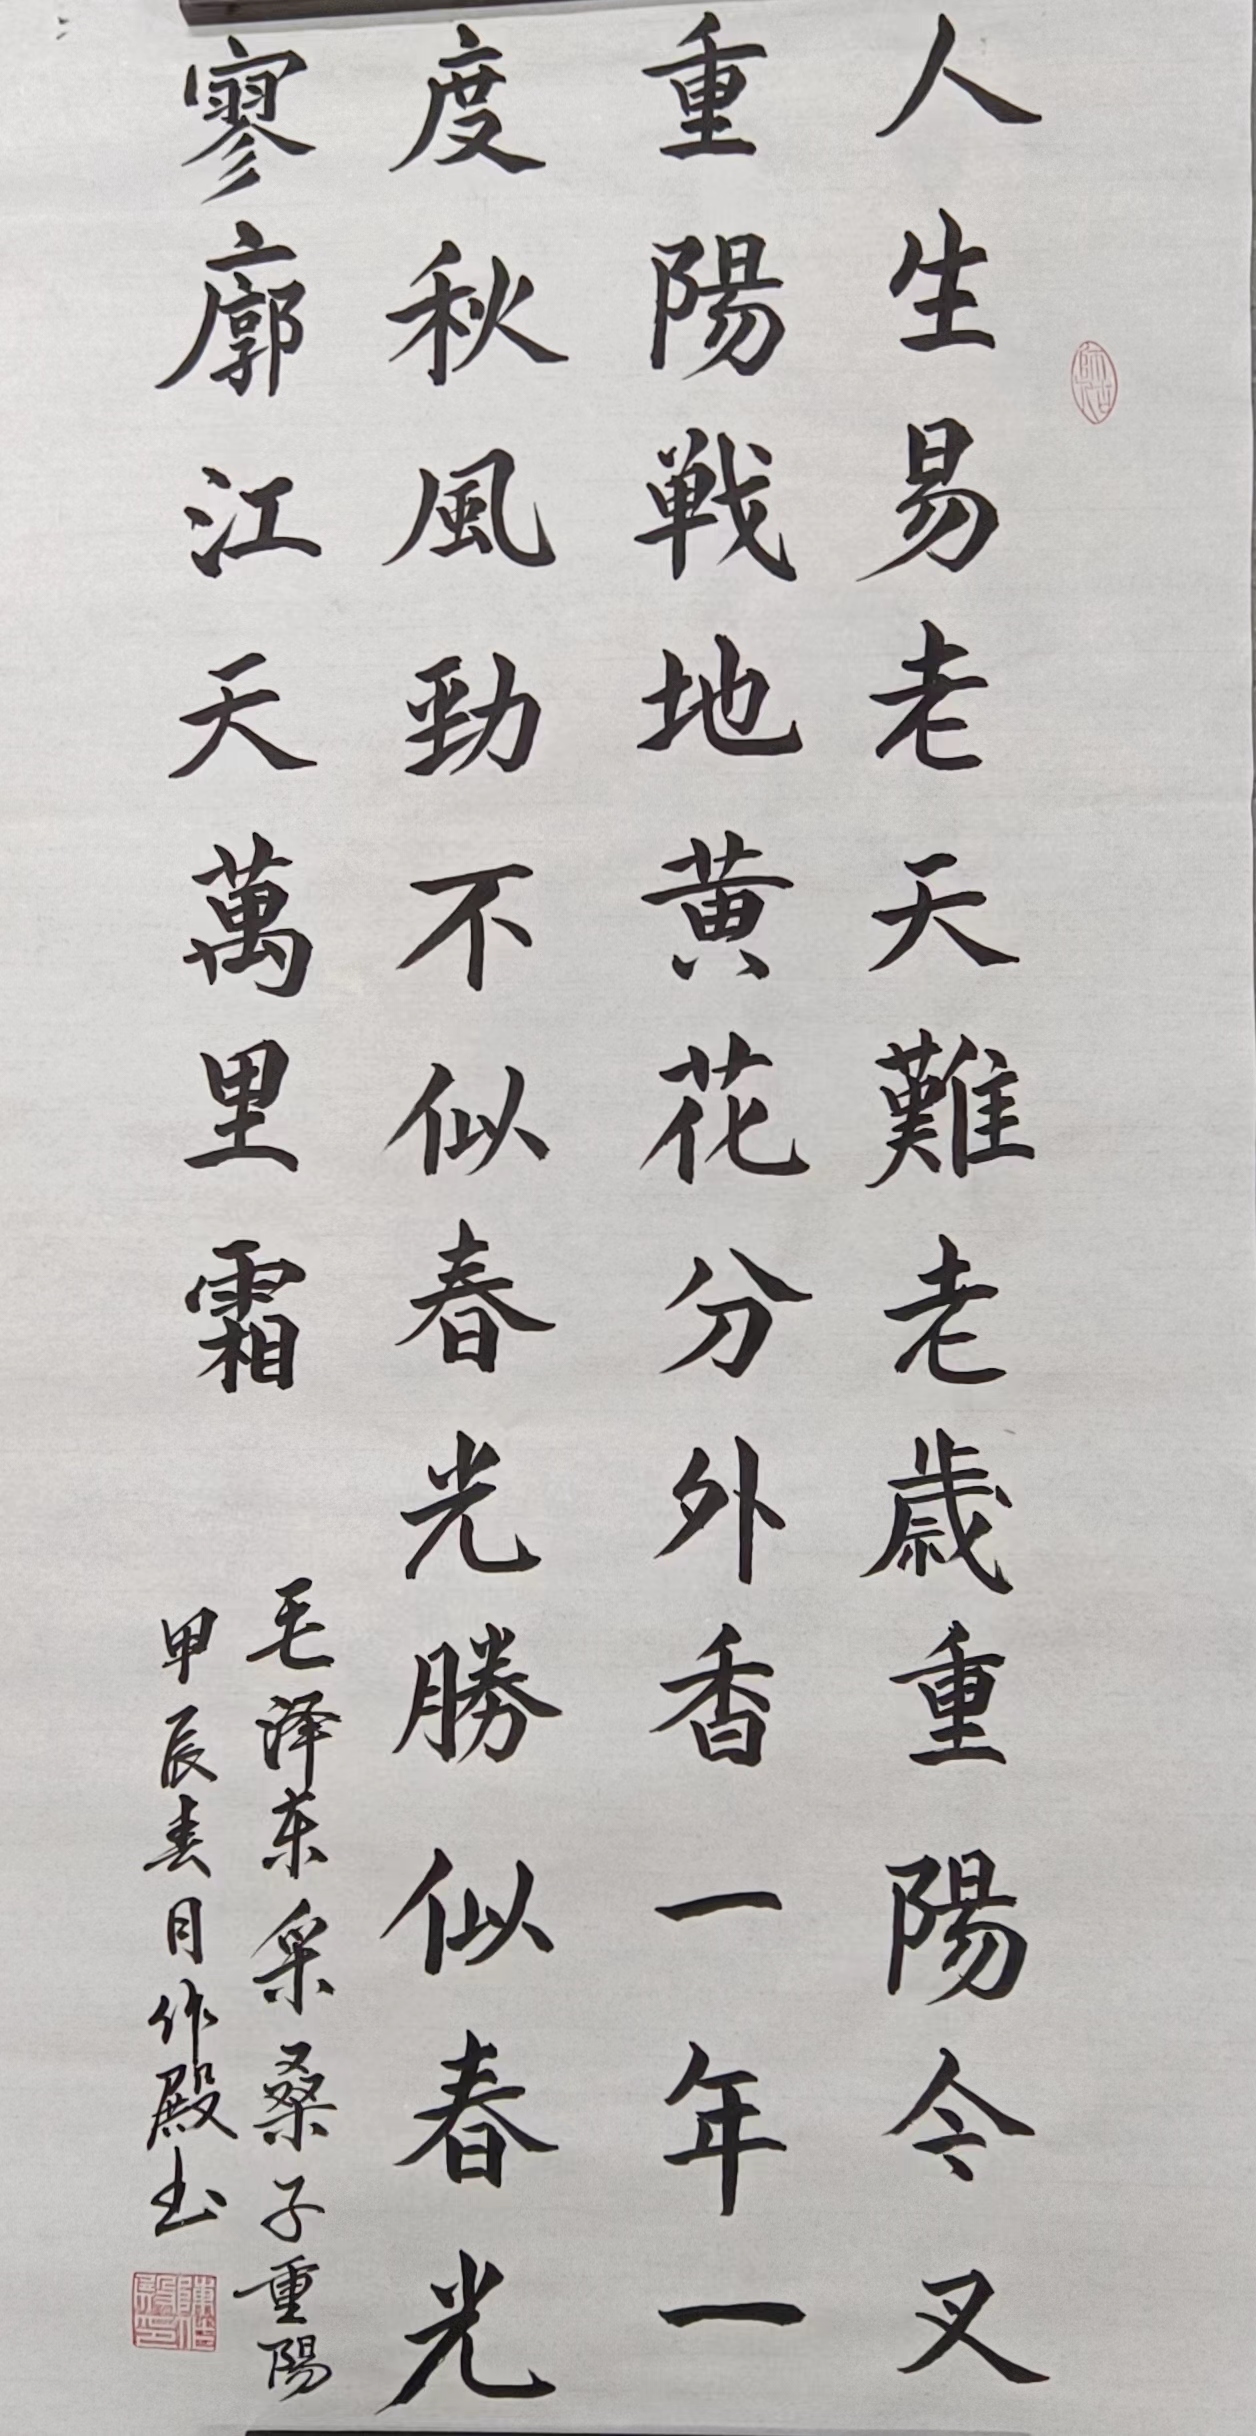 人生易老天難老歲重陽今又
重陽戦地黄花分外香一年一
度秋風勁不似春光勝似春光
寥廓江天萬里霜
毛泽东采桑子重陽
甲辰春月作殿书